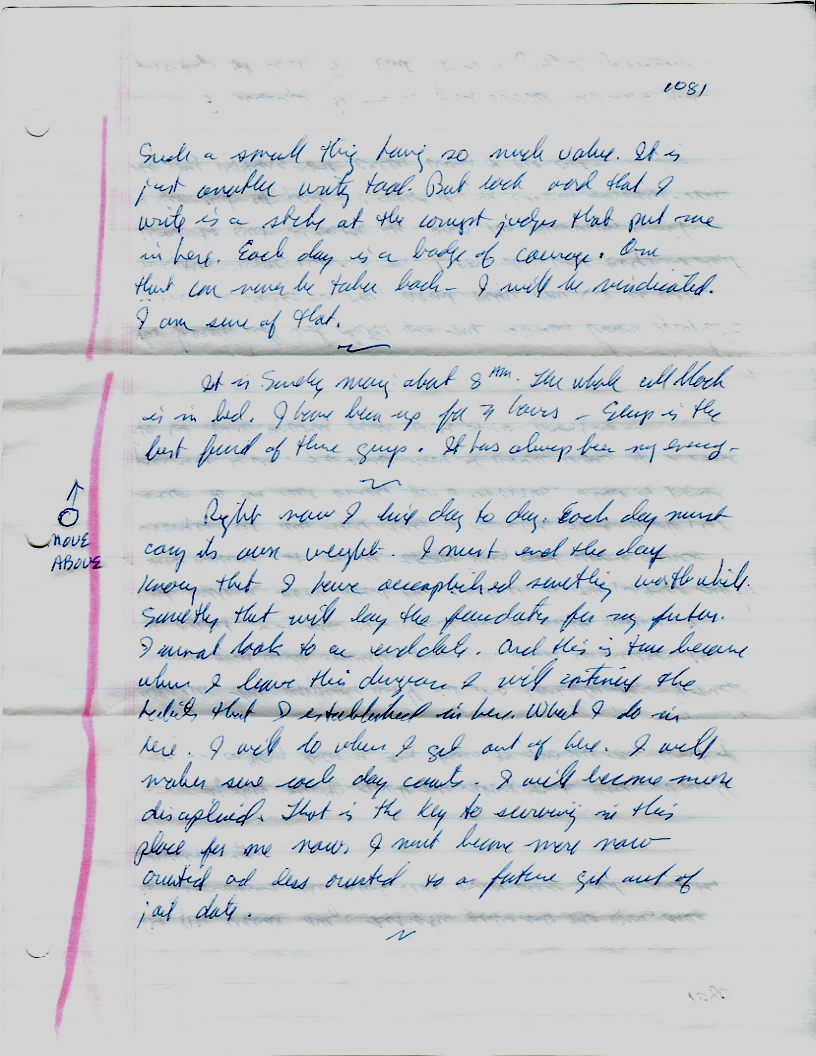 1081
Such a small thing having so much value. It is
just another writing tool. But each word that I
write is a strike at the corrupt judges that put me
in here. Each day is a badge of courage. One
that can never be taken back - I will be vindicated.
I am sure of that.
It is Sunday morning about 8 AM. The whole cell block
is in bed. I have been up for hours - Sleep is the
best friend of these guys. It has always been my enemy -
Right now I live day to day. Each day must
carry its own weight. I must end the day
knowing that I have accomplished something worthwhile.
Something that will lay the foundation for my future.
I cannot look to an end date. And this is true because
when I leave this dungeon I will continue the
habits that I established in here. What I do in
here. I will do when I get out of here. I will
make sure each day counts. I will become more
disciplined. That is the key to surviving in this
place for me now. I must become more now
oriented and less oriented to a future get out of
jail date.
MOVE
ABOVE